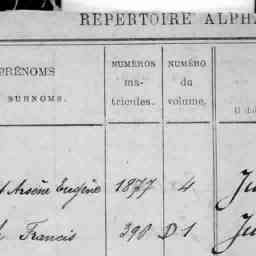 RÉPERTOIRE ALPHA
PRÉNOMS
SURNOMS.
NUMÉROS
ma-
tricules.
NUMÉRO
du
volume.
Arsène Eugène 1877 4 Ju
Francis 390 D 1 Ju